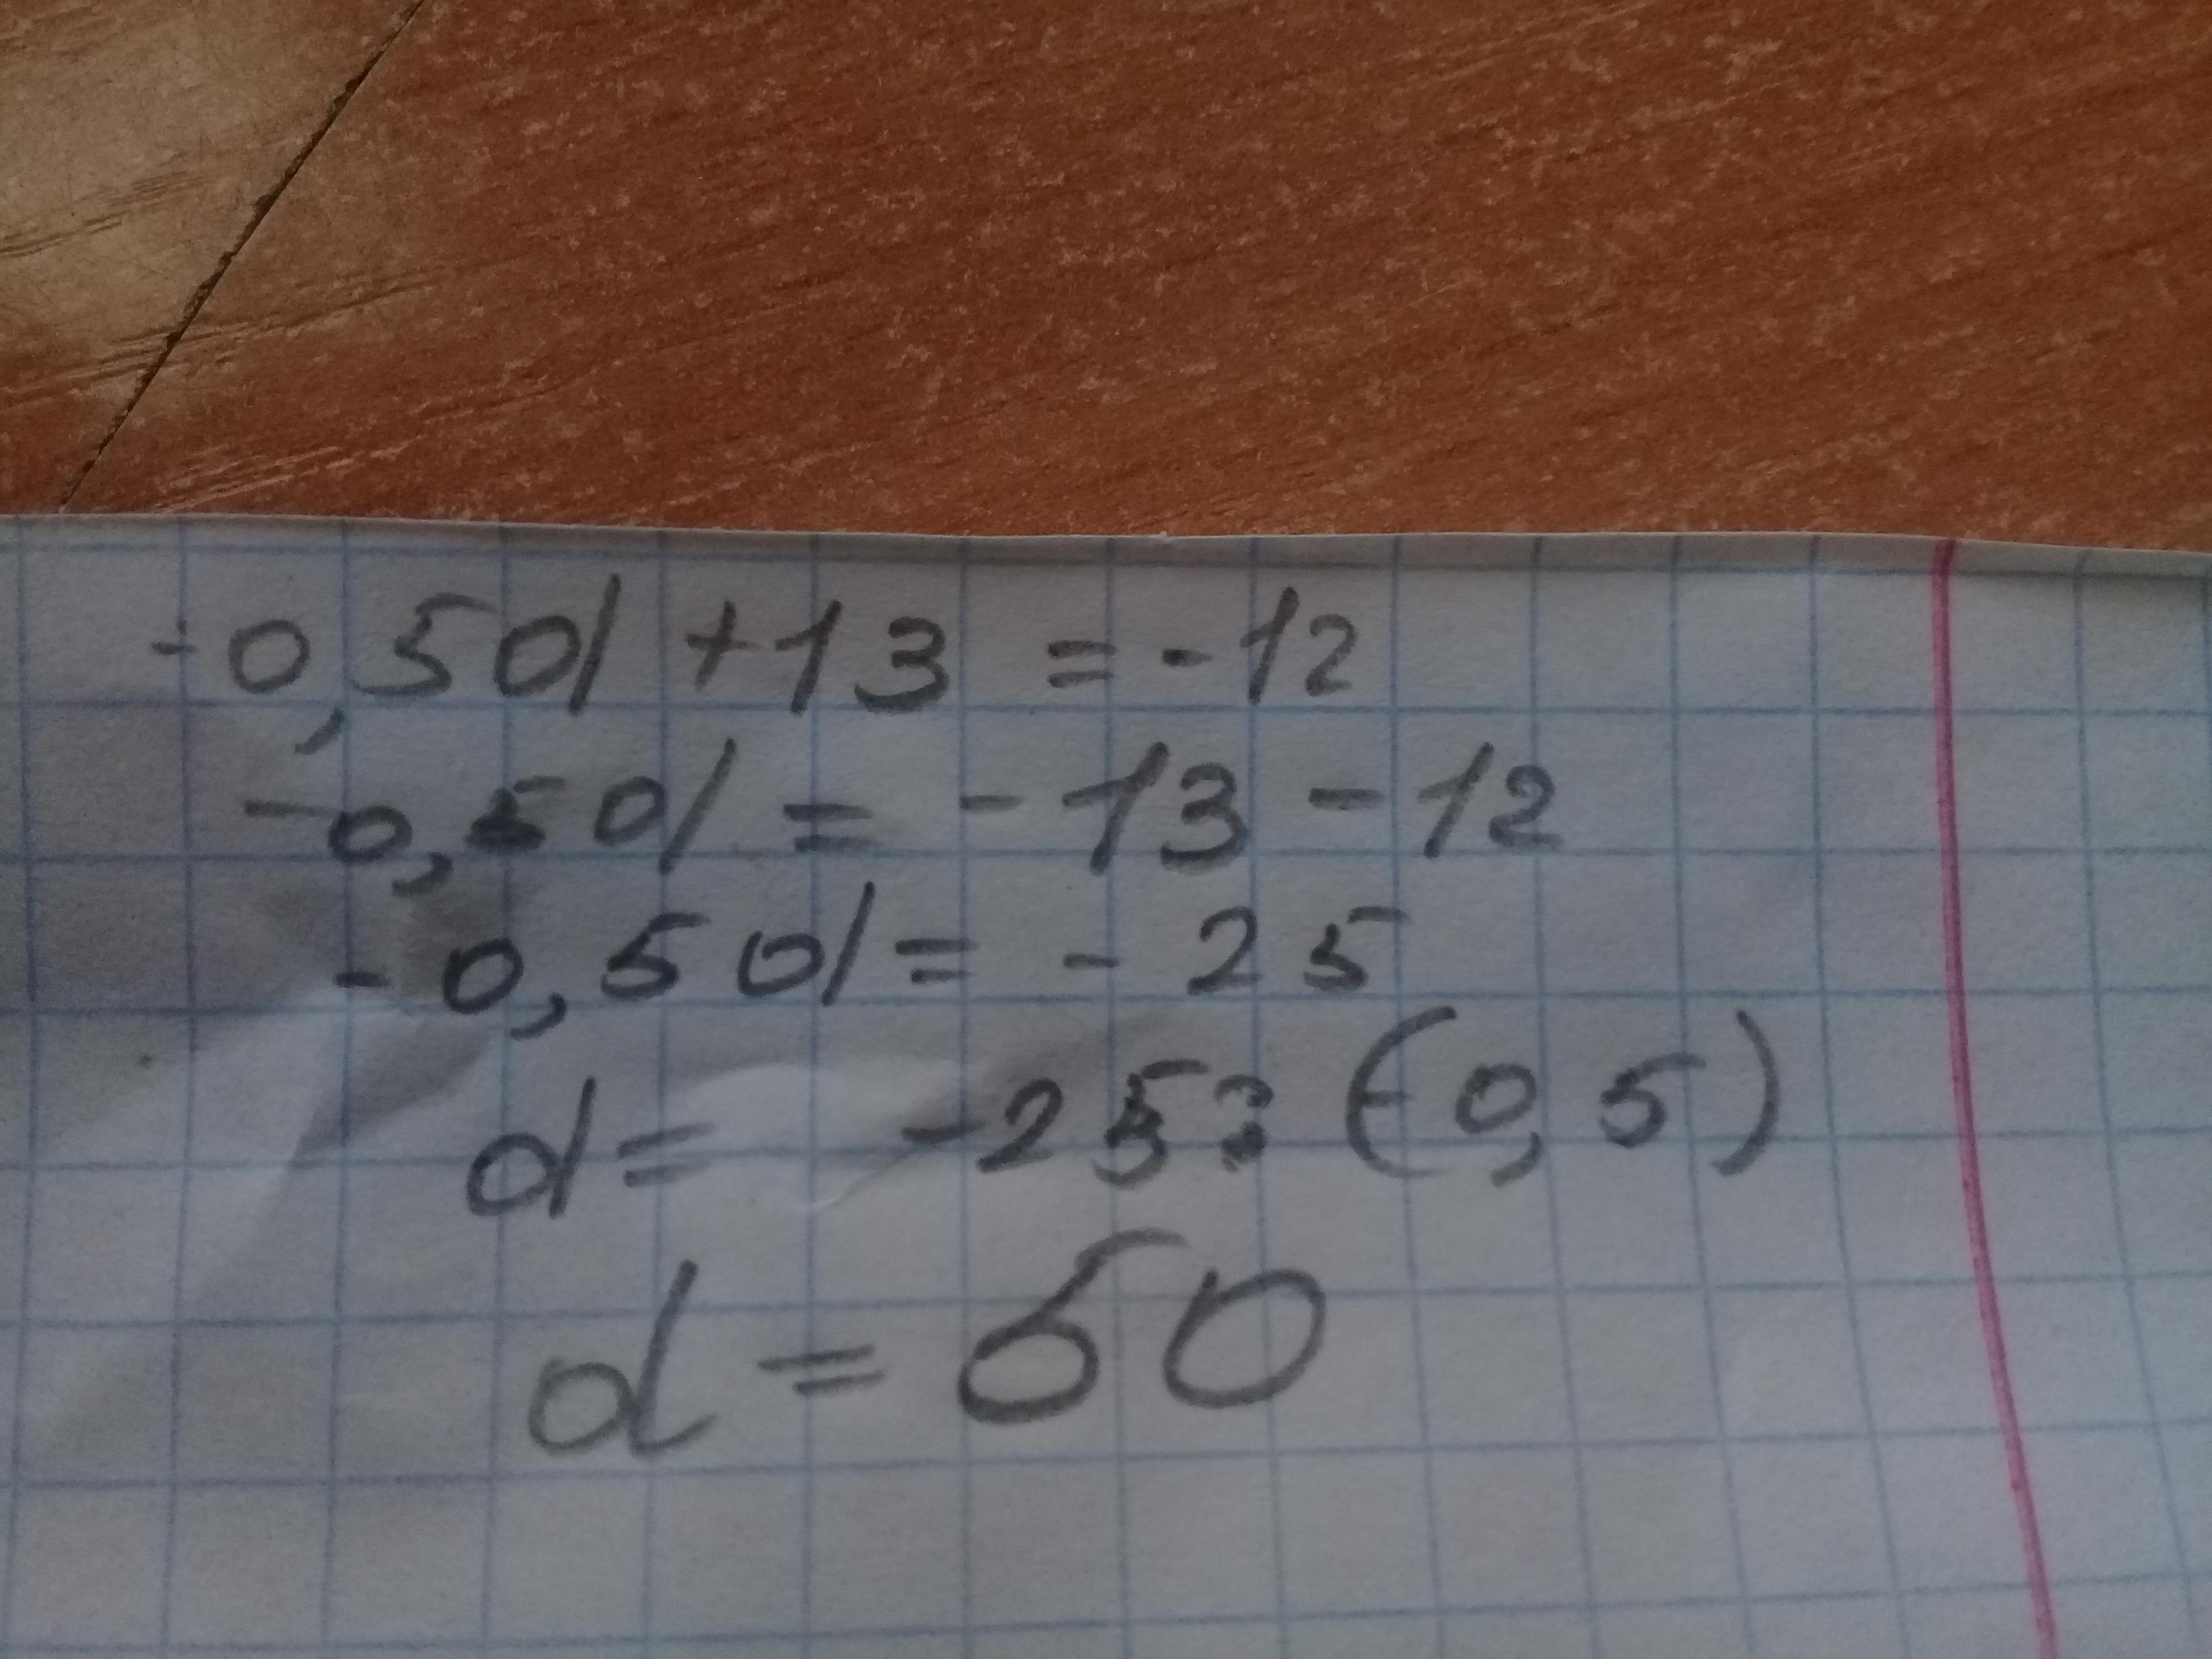 -0,5d + 13 = -12
-0,5d = -13 - 12
-0,5d = -25
d = -25 : (-0,5)
d = 50